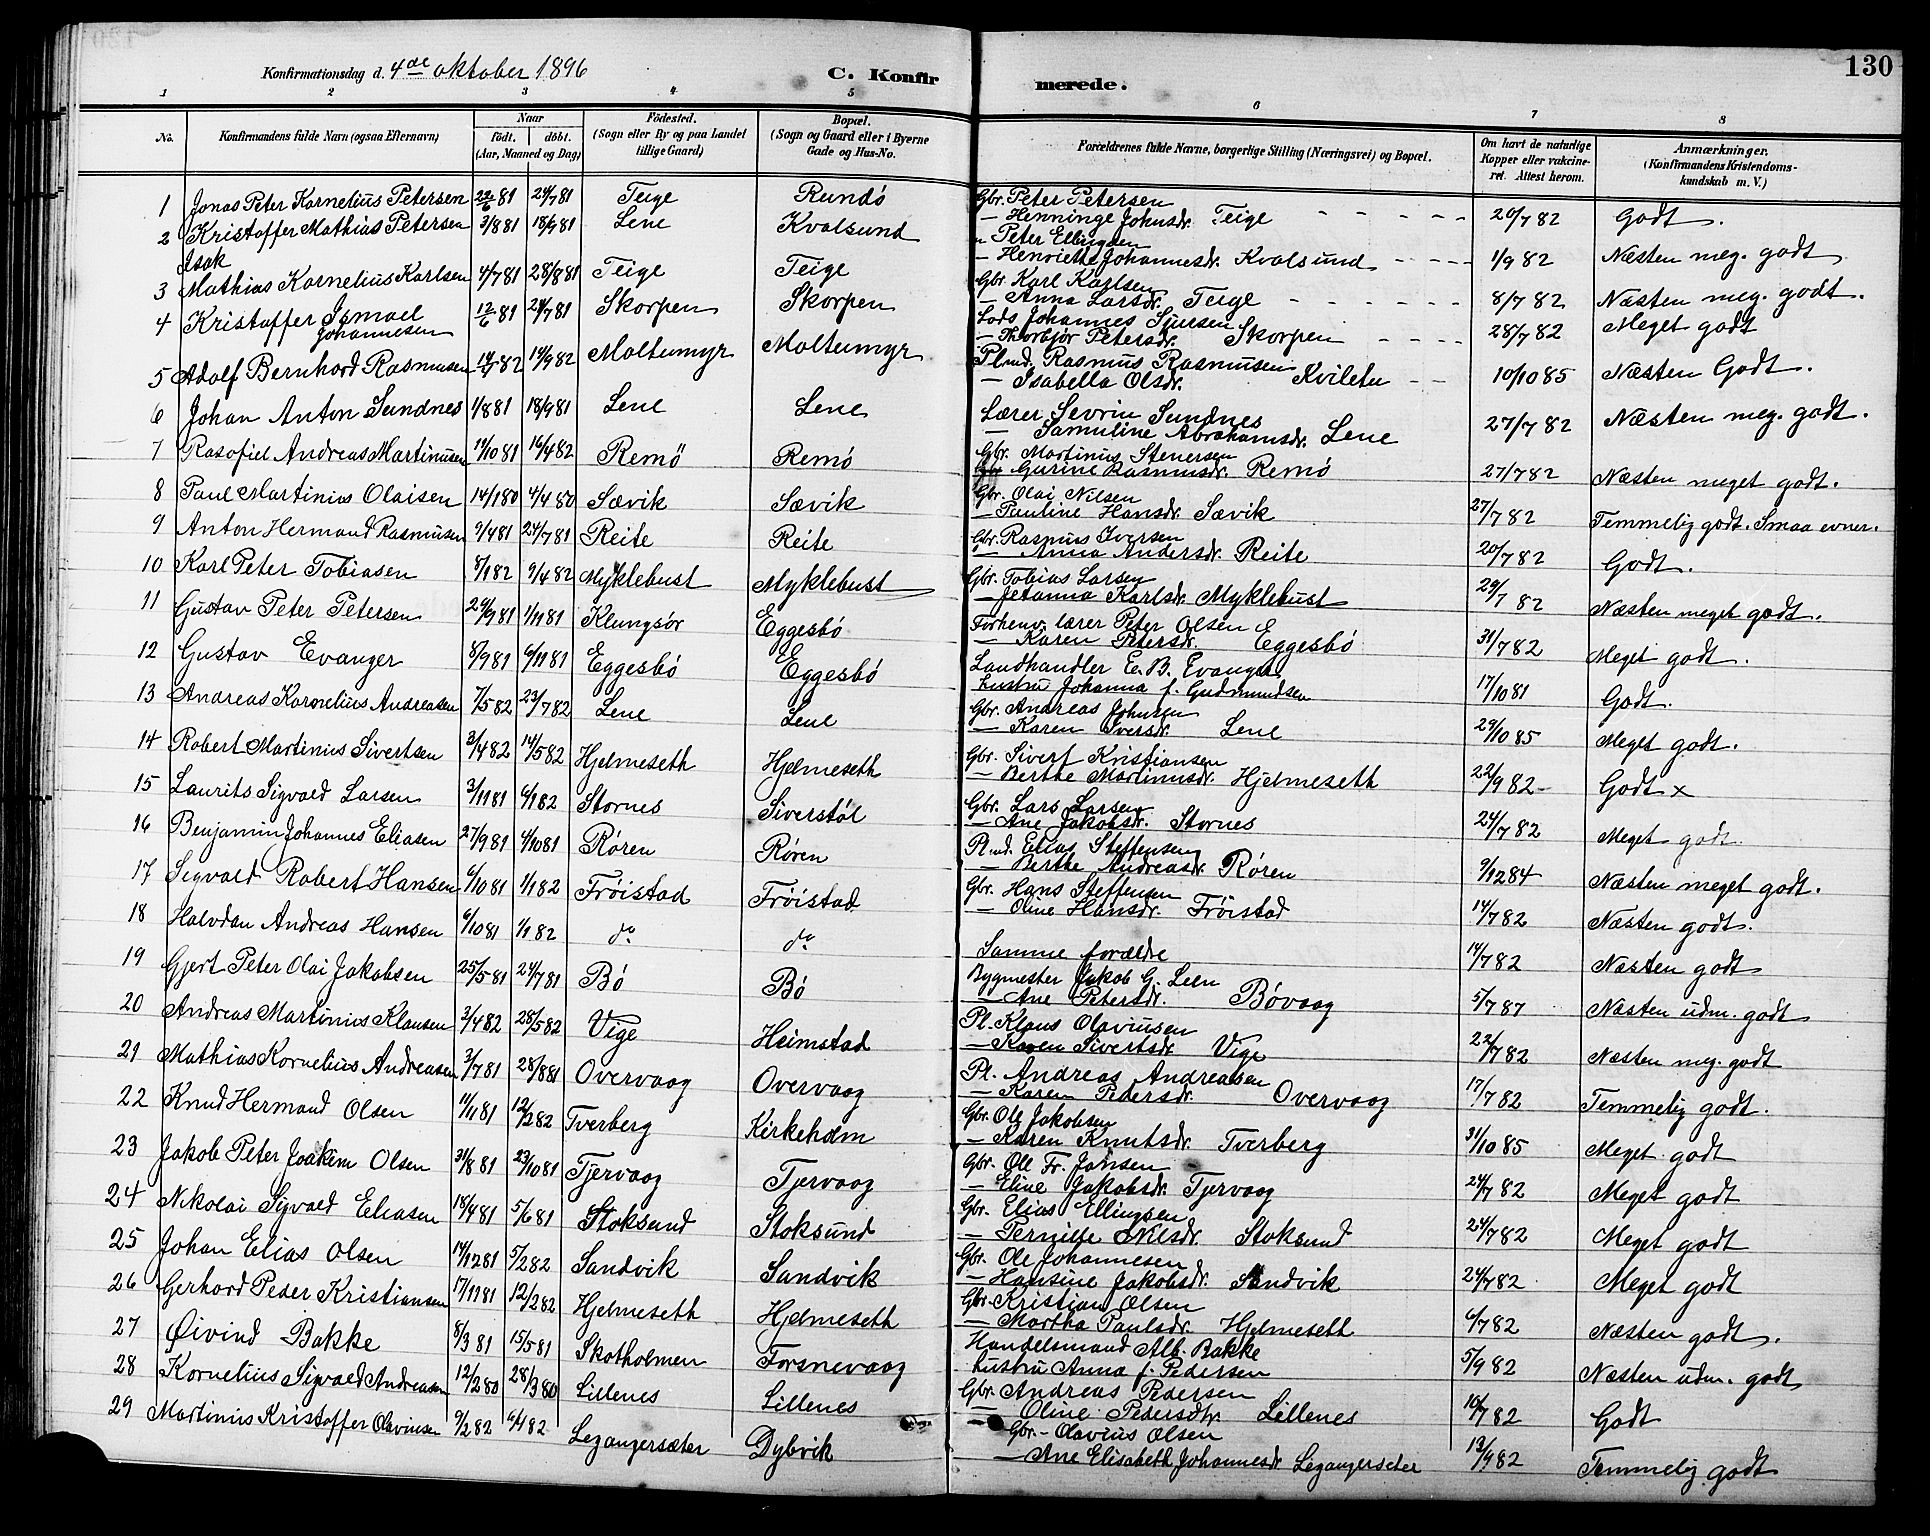 130
Konfirmationsdag d. 4de oktober 1896 C. Konfirmerede.
1 2 3 4 5 6 7 8
No. Konfirmandens fulde Navn (ogsaa Efternavn) Naar födt. döbt. (Aar, Maaned og Dag) Födested. (Sogn eller By og paa Landet tillige Gaard) Bopæl. (Sogn og Gaard eller i Byerne Gade og Hus-No. Forældrenes fulde Navne, borgerlige Stilling (Næringsvei) og Bopæl. Om havt de naturlige Kopper eller vakcineret. Attest herom. Anmærkninger. (Konfirmandens Kristendomskundskab m. V.)
1 Jonas Peter Kornelius Petersen 22/6 81 24/7 81 Teige Rundö Gbr. Peter Petersen
— Henninge Johnsdr. Teige 20/7 82 Godt.
2 Kristoffer Mathias Petersen 3/8 81 18/9 81 Lene Kvalsund " Peter Ellingsen
— Henriette Johannesdr. Kvalsund 1/9 82 Næsten meg. godt
3 Isak Mathias Kornelius Karlsen 4/7 81 28/8 81 Teige Teige Gbr. Karl Karlsen
— Anna Larsdr. Teige 8/7 82 Næsten meg. godt.
4 Kristoffer Ismael Johannesen 12/6 81 24/7 81 Skorpen Skorpen Lods Johannes Sjursen
— Thorbjør Petersdr. Skorpen 28/7 82 Meget godt
5 Adolf Bernhard Rasmusen 14/7 82 17/9 82 Moltumyr Moltumyr Plmd. Rasmus Rasmusen
— Isabella Olsdr. Kviletu 10/10 85 Næsten Godt.
6 Johan Anton Sundnes 1/8 81 18/9 81 Lene Lene Lærer Sevrin Sundnes
— Samuline Abrahamsdr. Lene 27/7 82 Næsten meg. godt.
7 Rasofiel Andreas Martinusen 14/10 81 16/4 82 Remö Remö Gbr. Martinus Stenersen
Gurine Rasmusdr. Remö 27/7 82 Næsten meget godt.
8 Paul Martinius Olaisen 14/1 80 4/4 80 Sævik Sævik Gbr. Olai Nilsen
— Pauline Hansdr. Sævik 27/7 82 Temmelig godt. Smaa evner.
9 Anton Hermand Rasmusen 9/4 81 24/7 81 Reite Reite Gbr. Rasmus Iversen
— Anna Andersdr. Reite 20/7 82 Godt.
10 Karl Peter Tobiasen 8/1 82 9/4 82 Myklebust Myklebust Gbr. Tobias Larsen
— Jetanna Karlsdr. Myklebust 24/7 82 Næsten meget godt.
11 Gustav Peter Petersen 24/9 81 1/11 81 Klungsör Eggesbö Forhenv. lærer Peter Olsen
— Karen Petersdr. Eggesbö 31/7 82 Meget godt.
12 Gustav Evanger 8/9 81 6/11 81 Eggesbö Eggesbö Landhandler E. B. Evanger
hustru Johanna f. Gudmundsen 17/10 81 Godt.
13 Andreas Kornelius Andreasen 7/5 82 23/7 82 Lene Lene Gbr. Andreas Johnsen
— Karen Iversdr. Lene 29/10 85 Meget godt.
14 Robert Martinius Sivertsen 3/4 82 14/5 82 Hjelmeseth Hjelmeseth Gbr. Sivert Kristiansen
— Berthe Martinusdr. Hjelmeseth 22/9 82 — Godt x
15 Laurits Sigvald Larsen 3/11 81 6/1 82 Stornes Siverstöl Gbr. Lars Larsen
— Ane Jakobsdr. Stornes 24/7 82 Meget godt.
16 Benjamin Johannes Eliasen 27/9 81 4/10 81 Rören Rören Plmd. Elias Steffensen
— Berthe Andreasdr. Rören 9/12 84 Næsten meget godt.
17 Sigvald Robert Hansen 6/10 81 1/1 82 Fröistad Fröistad Gbr. Hans Steffensen
— Oline Hansdr. Fröistad 14/7 82 Næsten godt.
18 Halvdan Andreas Hansen 6/10 81 1/1 82 do do Samme forældre 14/7 82 Næsten godt
19 Gjert Peter Olai Jakobsen 25/5 81 24/7 81 Bö Bö Bygmester Jakob G. Leen
— Ane Petersdr. Bövaag 5/7 87 Næsten udm. godt
20 Andreas Martinius Klausen 3/4 82 28/5 82 Vige Heimstad Pl. Klaus Olaviusen
— Karen Sivertsdr. Vige 22/7 82 Næsten meg. godt
21 Mathias Kornelius Andreasen 3/7 81 28/8 81 Overvaag Overvaag Pl. Andreas Andreasen
— Karen Pedersdr. Overvaag 17/7 82 Temmelig godt.
22 Knud Hermand Olsen 14/11 81 12/2 82 Tverberg Kirkeholm Gbr. Ole Jakobsen
— Karen Knutsdr. Tverberg 31/10 85 Meget godt
23 Jakob Peter Joakim Olsen 31/8 81 23/10 81 Tjervaag Tjervaag Gbr. Ole Fr. Jansen
— Eline Jakobsdr. Tjervaag 24/7 82 Meget godt
24 Nikolai Sigvald Eliasen 18/4 81 5/6 81 Stoksund Stoksund Gbr. Elias Ellingsen
— Pernille Nilsdr. Stoksund 24/7 82 Meget godt
25 Johan Elias Olsen 14/12 81 5/2 82 Sandvik Sandvik Gbr. Ole Johannesen
— Hansine Jakobsdr. Sandvik 24/7 82 Meget godt
26 Gerhard Peder Kristiansen 17/11 81 12/2 82 Hjelmeseth Hjelmeseth Gbr. Kristian Olsen
— Martha Paulsdr. Hjelmeseth 6/7 82 Næsten godt.
27 Öivind Bakke 8/3 81 15/5 81 Skotholmen Forsnevaag Handelsmand Alb. Bakke
hustru Anna f. Pedersen 5/9 82 Næsten udm. godt
28 Kornelius Sigvald Andreasen 12/2 80 28/3 80 Lillenes Lillenes Gbr. Andreas Pedersen
— Oline Pedersdtr. Lillenes 10/7 82 Godt
29 Martinius Kristoffer Olaviusen 9/2 82 6/4 82 Legangersæter Dybvik Gbr. Olavius Olsen
— Ane Elisabeth Johannesdr. Legangerseter 13/9 82 Temmelig godt